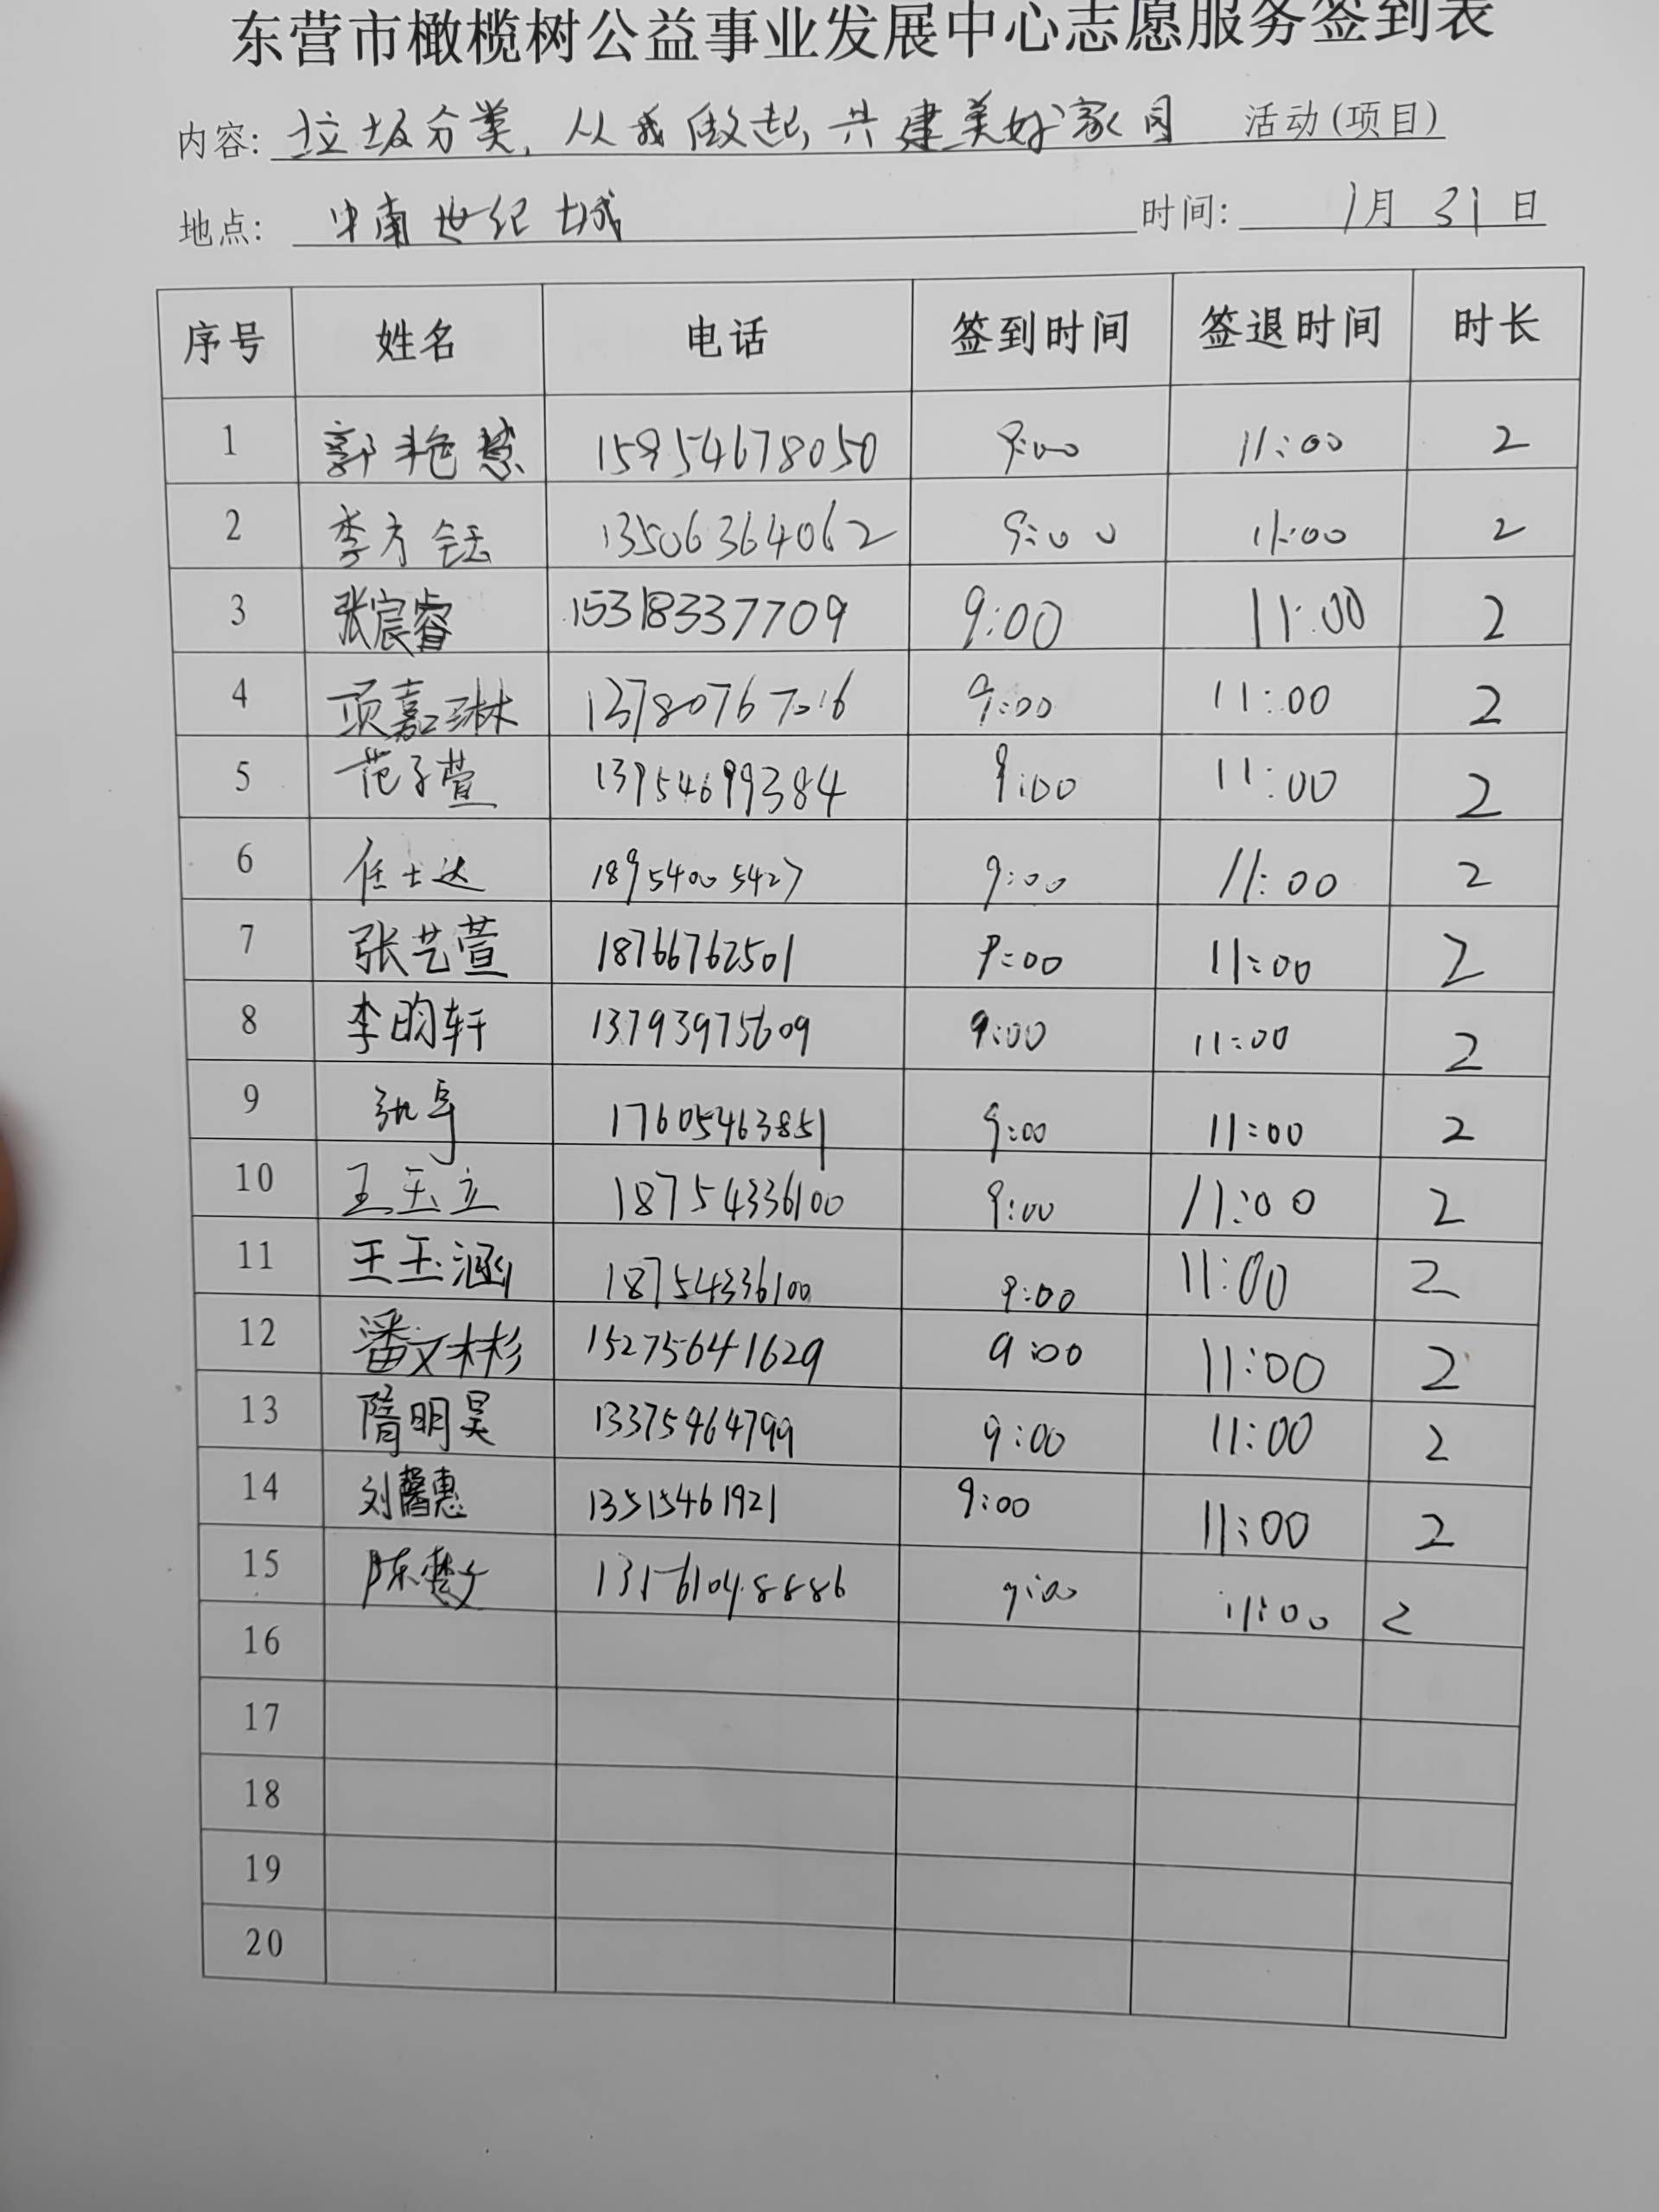 东营市橄榄树公益事业发展中心志愿服务签到表
内容: 垃圾分类,从我做起,共建美好家园 活动(项目)
地点: 中南世纪城 时间: 1月31日
序号 姓名 电话 签到时间 签退时间 时长
1 郭艳慧 15954678050 9:00 11:00 2
2 李方钰 13506364062 9:00 11:00 2
3 张宸睿 15318337709 9:00 11:00 2
4 项嘉琳 13780767016 9:00 11:00 2
5 范子萱 13954699384 9:00 11:00 2
6 任士达 18954005427 9:00 11:00 2
7 张艺萱 18766762501 9:00 11:00 2
8 李昀轩 13793975609 9:00 11:00 2
9 17605463851 9:00 11:00 2
10 王玉立 18754336100 9:00 11:00 2
11 王玉涵 18754336100 9:00 11:00 2
12 潘文彬 15275641629 9:00 11:00 2
13 隋明昊 13375464799 9:00 11:00 2
14 刘馨惠 13515461921 9:00 11:00 2
15 9:00 11:00 2
16
17
18
19
20